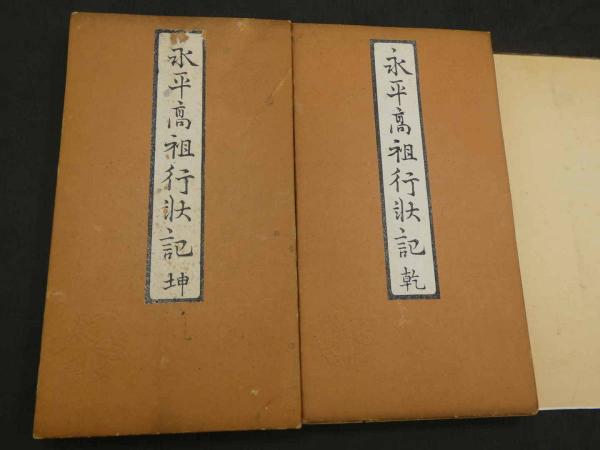 永平高祖行状記 乾
永平高祖行状記 坤